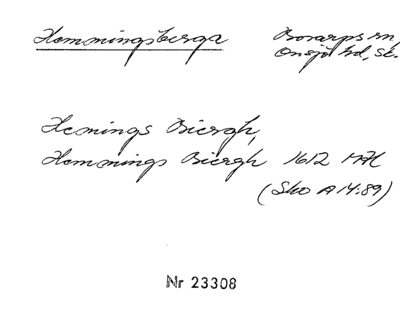 Hemmingsberga Bosarps sn,
Onsjö hd, Sk.
Hemings Biergh,
Hemmings Biergh 1612 MH
(Sko A 14:89)
Nr 23308